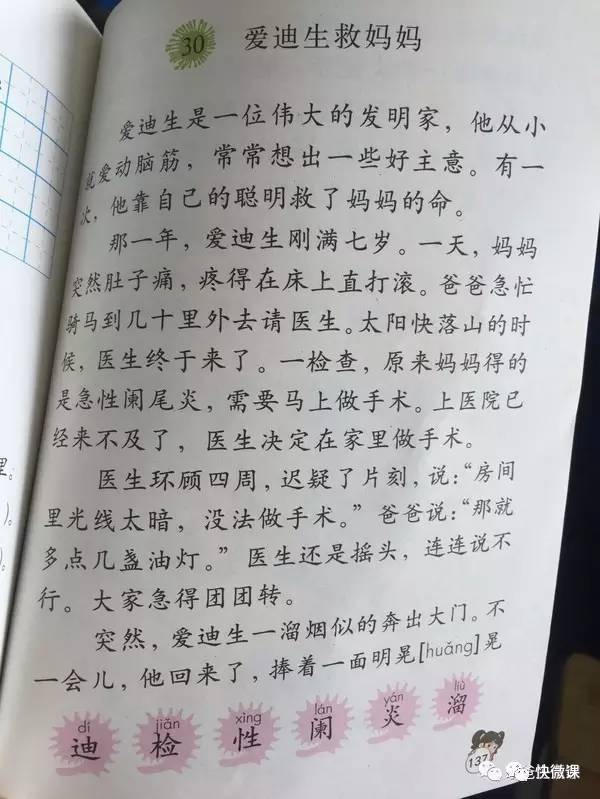 30 爱迪生救妈妈
爱迪生是一位伟大的发明家，他从小
就爱动脑筋，常常想出一些好主意。有一
次，他靠自己的聪明救了妈妈的命。
那一年，爱迪生刚满七岁。一天，妈妈
突然肚子痛，疼得在床上直打滚。爸爸急忙
骑马到几十里外去请医生。太阳快落山的时
候，医生终于来了。一检查，原来妈妈得的
是急性阑尾炎，需要马上做手术。上医院已
经来不及了，医生决定在家里做手术。
医生环顾四周，迟疑了片刻，说：“房间
里光线太暗，没法做手术。”爸爸说：“那就
多点几盏油灯。”医生还是摇头，连连说不
行。大家急得团团转。
突然，爱迪生一溜烟似的奔出大门。不
一会儿，他回来了，捧着一面明晃[huǎng]晃
dí jiǎn xìng lán yán liù
迪 检 性 阑 炎 溜
137
快微课
里：
)。
)。